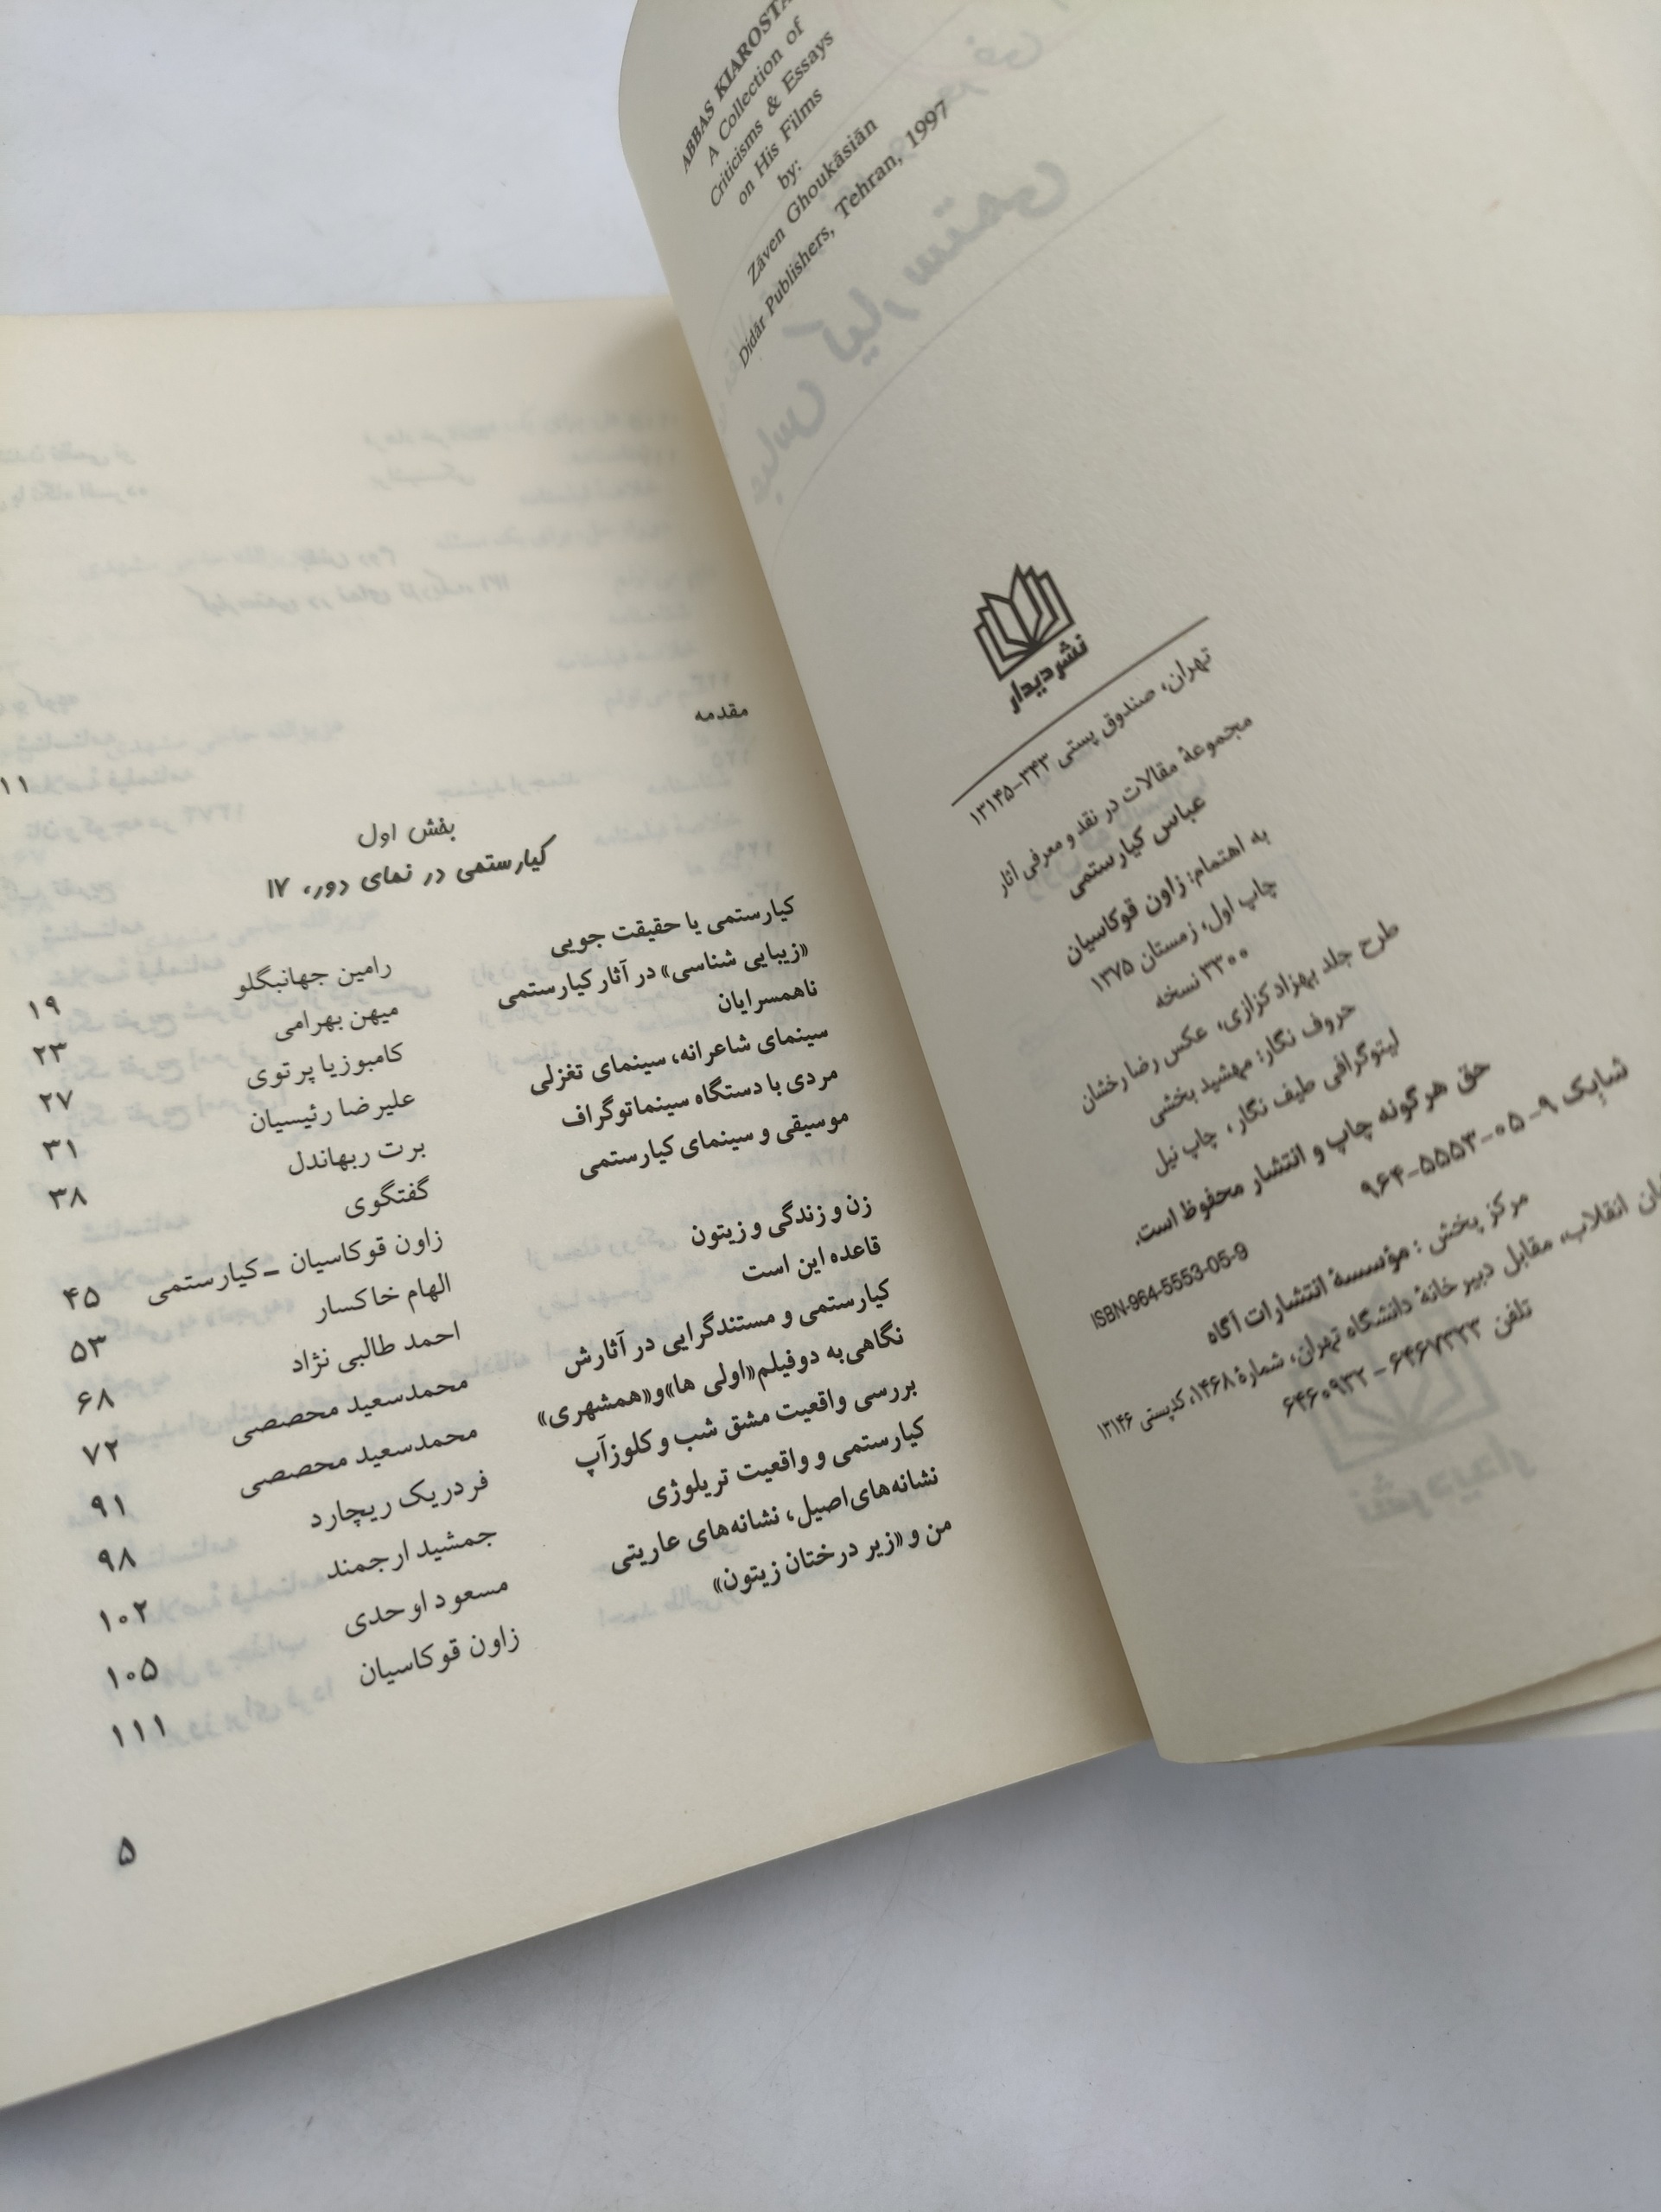 ABBAS KIAROSTA
A Collection of
Criticisms & Essays
on His Films
by:
Zāven Ghoukāsiān
Didār Publishers, Tehran, 1997
نشر دیدار
تهران، صندوق پستی ۳۴۳-۱۳۱۴۵
مجموعهٔ مقالات در نقد و معرفی آثار
عباس کیارستمی
به اهتمام: زاون قوکاسیان
چاپ اول، زمستان ۱۳۷۵
۳۳۰۰ نسخه
طرح جلد بهزاد کزازی، عکس رضا رخشان
حروف نگار: مهشید بخشی
لیتوگرافی طیف نگار، چاپ نیل
حق هرگونه چاپ و انتشار محفوظ است.
شابک ۹-۰۵-۵۵۵۳-۹۶۴
ISBN-964-5553-05-9
مرکز پخش: مؤسسهٔ انتشارات آگاه
انقلاب، مقابل دبیر خانهٔ دانشگاه تهران، شمارهٔ ۱۴۶۸، کدپستی ۱۳۱۴۶
تلفن ۶۴۶۷۳۲۳ - ۶۴۶۰۹۳۲
مقدمه ۱۱
بخش اول
کیارستمی در نمای دور، ۱۷
کیارستمی یا حقیقت جویی رامین جهانبگلو ۱۹
«زیبایی شناسی» در آثار کیارستمی میهن بهرامی ۲۳
ناهمسرایان کامبوزیا پرتوی ۲۷
سینمای شاعرانه، سینمای تغزلی علیرضا رئیسیان ۳۱
مردی با دستگاه سینماتوگراف برت ربهاندل ۳۸
موسیقی و سینمای کیارستمی گفتگوی
زاون قوکاسیان ـ کیارستمی ۴۵
زن و زندگی و زیتون الهام خاکسار ۵۳
قاعده این است احمد طالبی نژاد ۶۸
کیارستمی و مستندگرایی در آثارش محمدسعید محصصی ۷۲
نگاهی به دو فیلم «اولی ها» و «همشهری» محمدسعید محصصی ۹۱
بررسی واقعیت مشق شب و کلوزآپ فردریک ریچارد ۹۸
کیارستمی و واقعیت تریلوژی جمشید ارجمند ۱۰۲
نشانه‌های اصیل، نشانه‌های عاریتی مسعود اوحدی ۱۰۵
من و «زیر درختان زیتون» زاون قوکاسیان ۱۱۱
۵